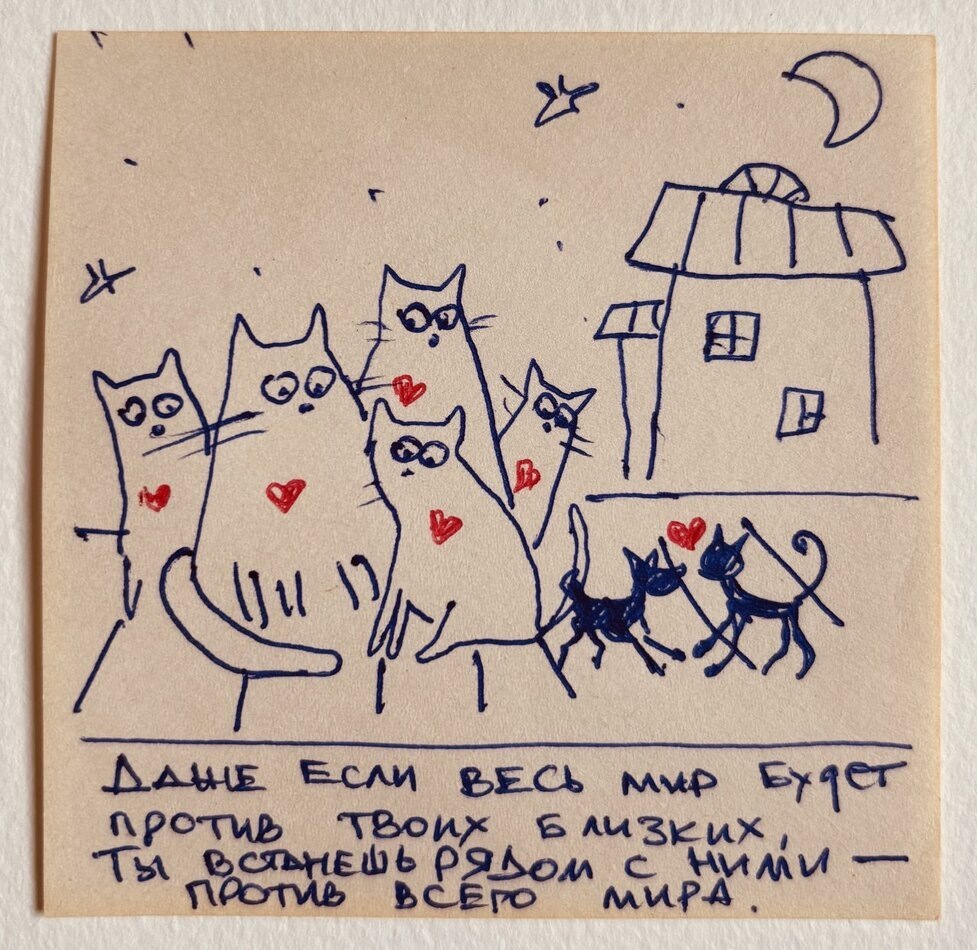 ДАЖЕ ЕСЛИ ВЕСЬ МИР БУДЕТ
ПРОТИВ ТВОИХ БЛИЗКИХ,
ТЫ ВСТАНЕШЬ РЯДОМ С НИМИ —
ПРОТИВ ВСЕГО МИРА.